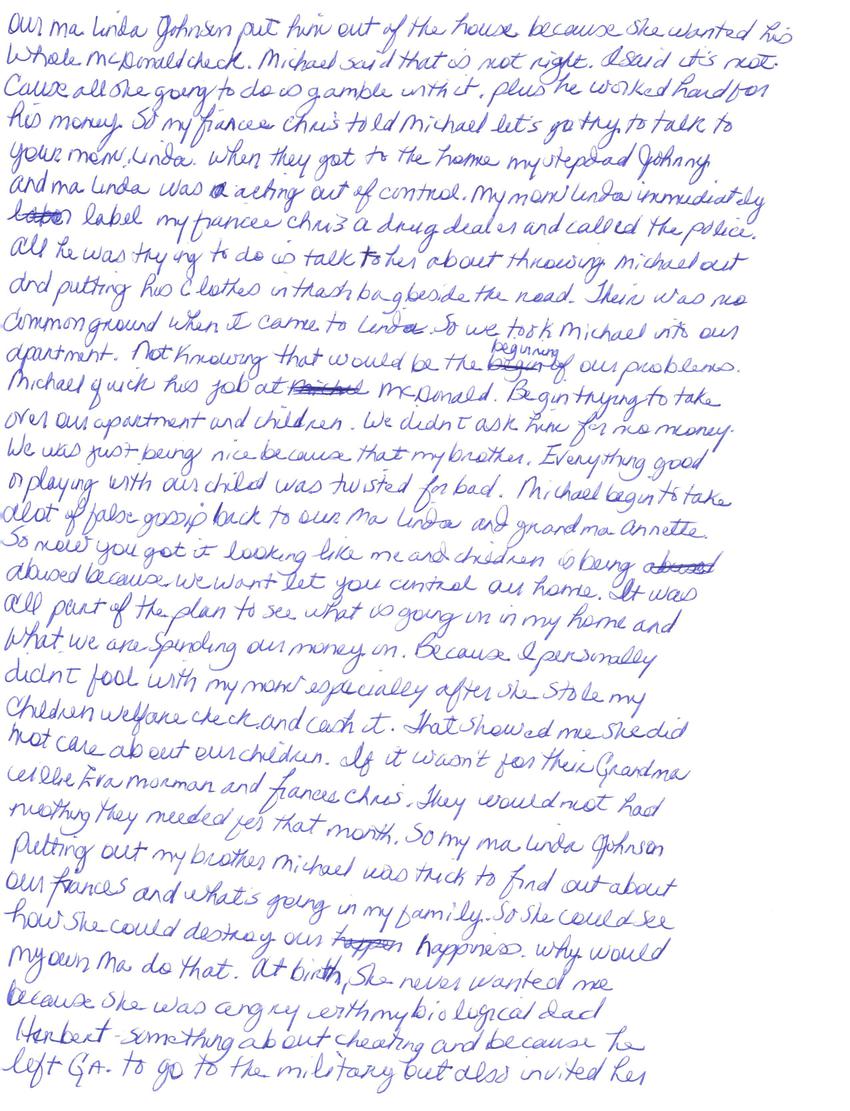 our ma Linda Johnson put him out of the house because she wanted his
whole McDonald check. Michael said that is not right. I said it's not.
Cause all she going to do is gamble with it. plus he worked hard for
his money. So my fiancee chris told Michael let's go try to talk to
your mom, Linda. when they got to the home my stepdad Johnny
and ma Linda was acting out of control. My mom Linda immediately
label my fiancee chris a drug dealer and called the police.
all he was trying to do is talk to her about throwing Michael out
and putting his clothes in trash bag beside the road. Their was no
common ground when I came to Linda. So we took Michael into our
apartment. Not knowing that would be the beginning of our problems.
Michael quick his job at McDonald. Begin trying to take
over our apartment and children. We didn't ask him for no money.
We was just being nice because that my brother. Everything good
or playing with our child was twisted for bad. Michael begin to take
alot of false gossip back to our Ma Linda and grandma Annette.
So now you got it looking like me and children is being
abused because we want let you control our home. It was
all part of the plan to see what is going on in my home and
what we are spending our money on. Because I personally
didn't fool with my mom especially after she stole my
Children welfare check and cash it. That showed me she did
not care about our children. If it wasn't for their Grandma
Willie Eva Morman and frances chris. They would not had
nothing they needed for that month. So my ma Linda Johnson
Putting out my brother Michael was trick to find out about
our frances and what's going in my family. So she could see
how she could destroy our happiness. why would
my own Ma do that. At birth, She never wanted me
because she was angry with my biological dad
Herbert - something about cheating and because he
left GA. to go to the military but also invited her